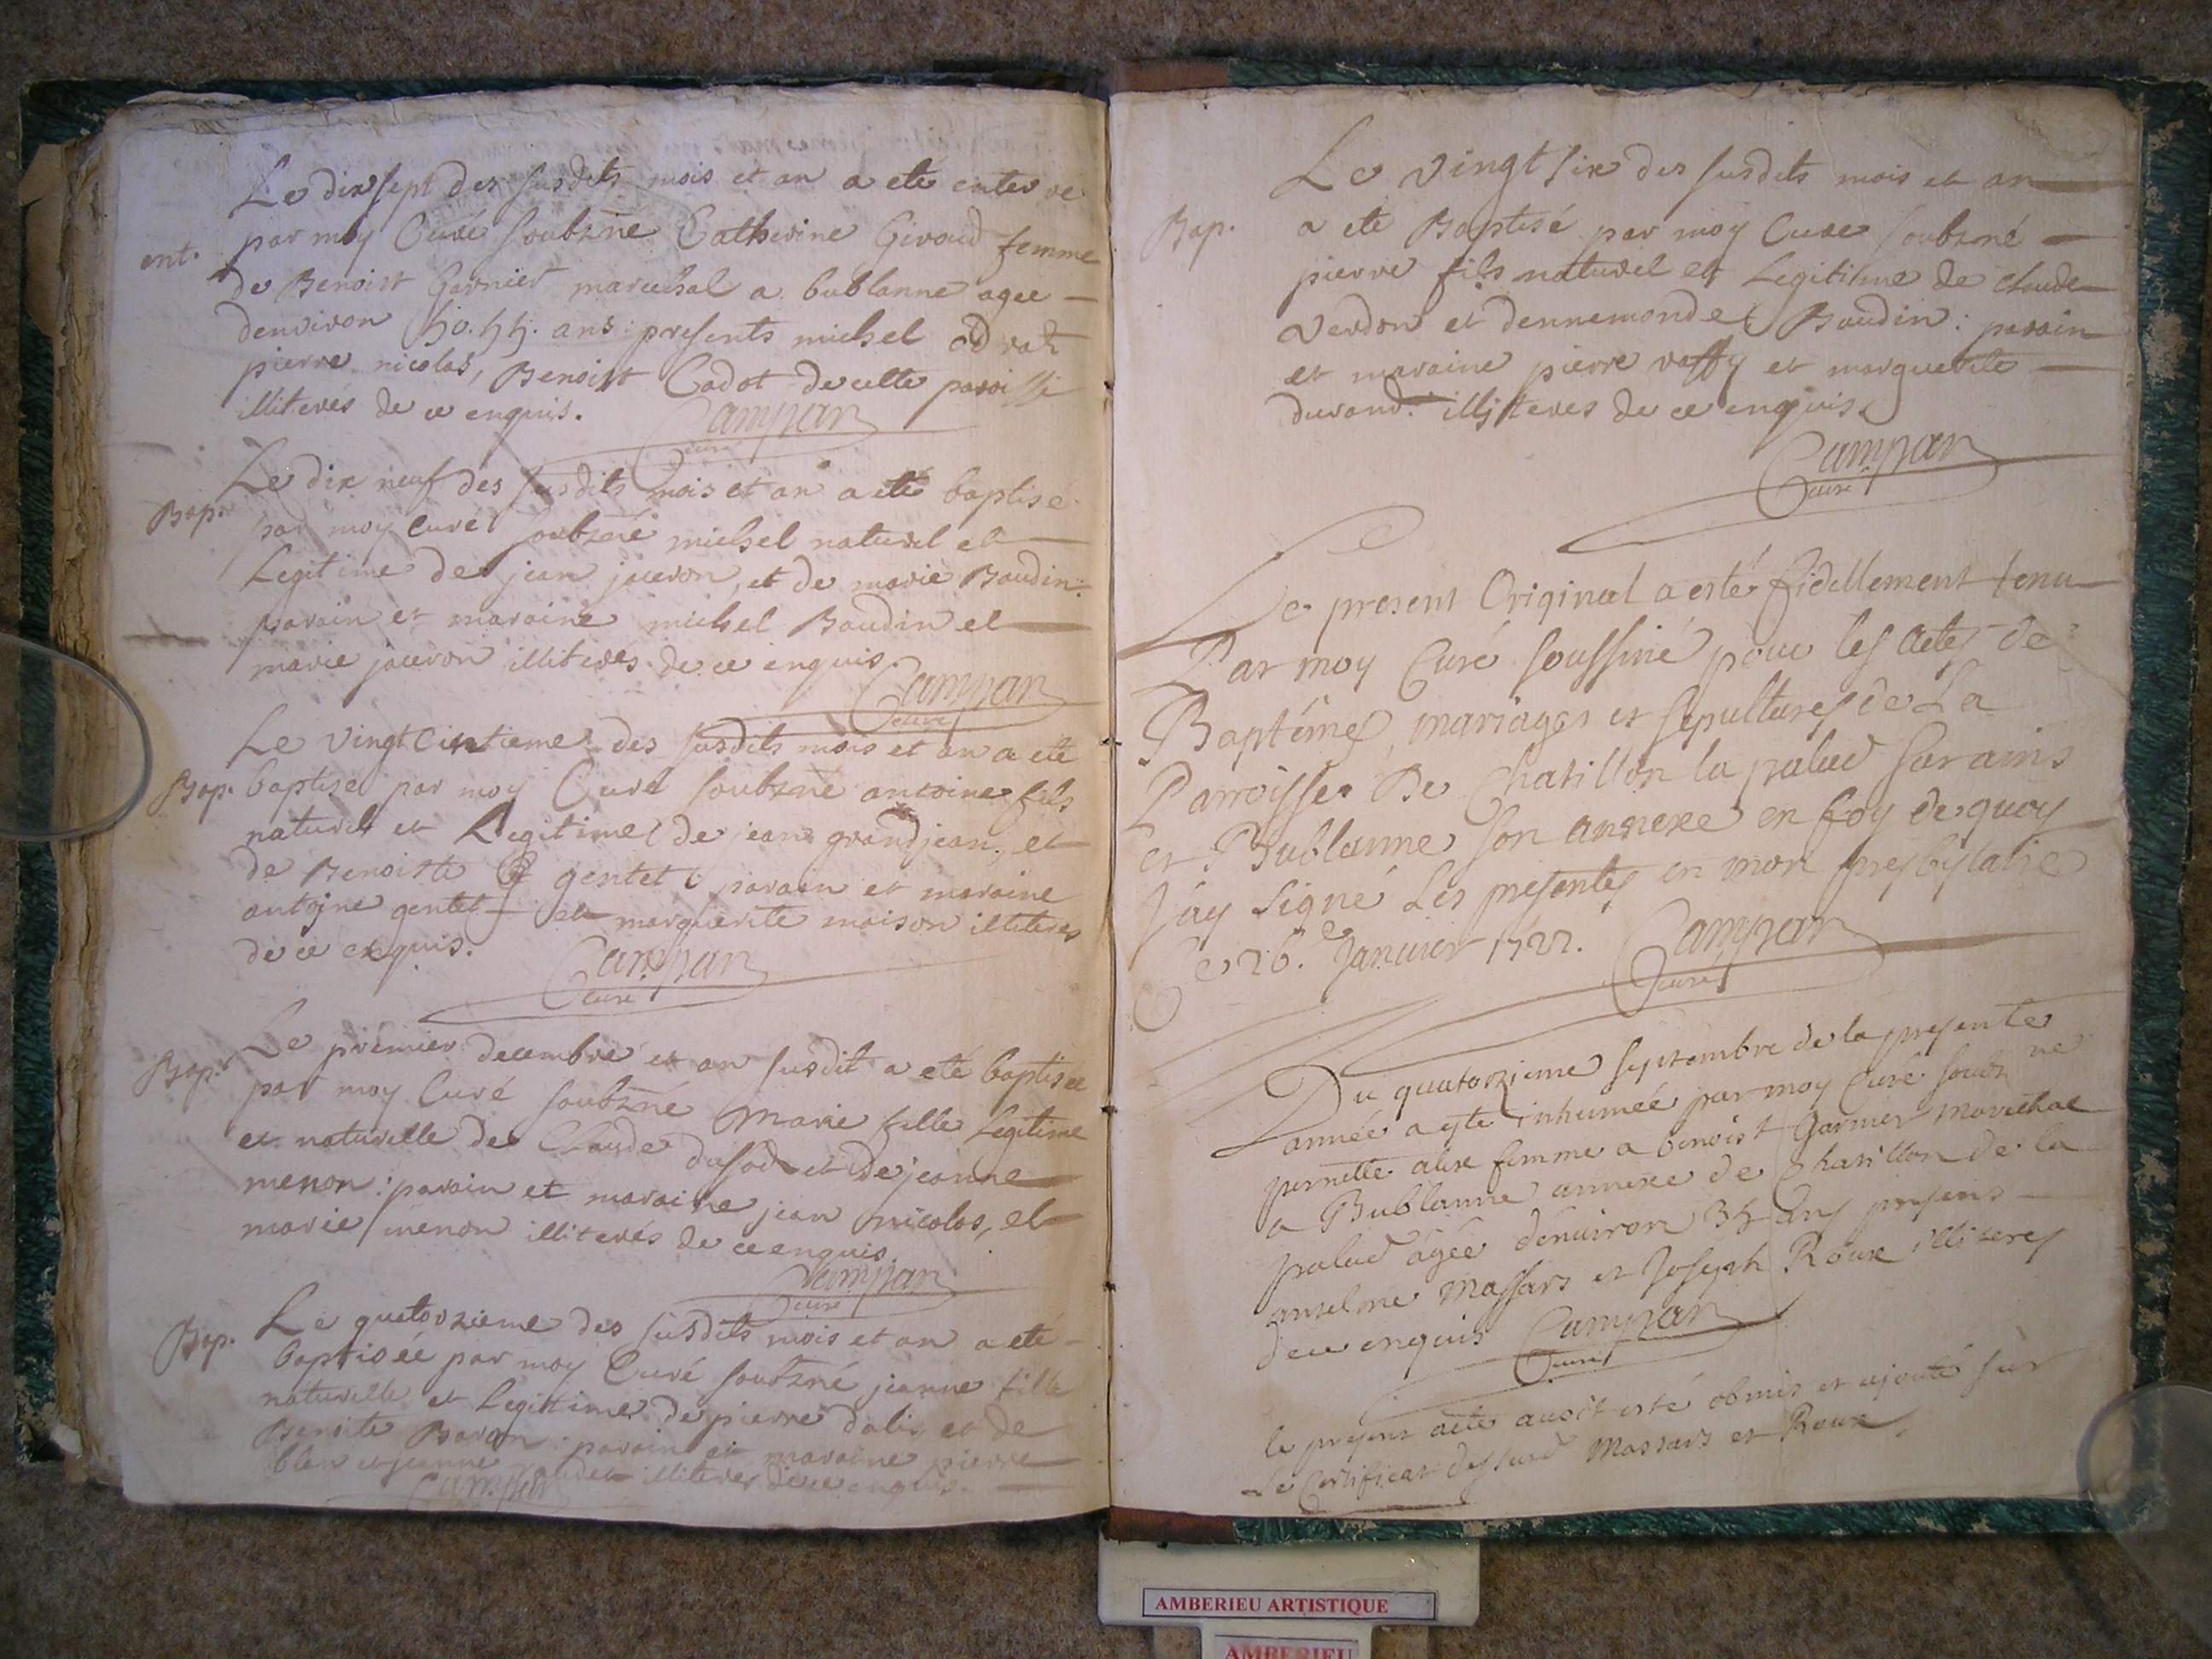 Le dix sept des susdits mois et an a eté enterré
ent.
par moy Curé soubzné Catherine Giroud femme
de Benoist Garnier marechal a bublanne agee
denviron 50. 55. ans: presents michel
pierre nicolas, Benoist Cadot de cette paroisse
illiterés de ce enquis.
Campan
Curé
Le dix neuf des susdits mois et an a eté baptisé
Bap.
par moy Curé soubzné michel naturel et
Legitime de jean jaceron, et de marie Baudin:
parain et maraine michel Baudin et
marie jaceron illiterés de ce enquis.
Campan
Curé
Le vingt cintieme des susdits mois et an a eté
Bap.
baptisé par moy Curé soubzné antoine fils
naturel et Legitime de jean grandjean, et
de Benoiste gentet parain et maraine
antoine gentet et marguerite maison illiterés
de ce enquis.
Campan
Curé
Le premier decembre et an susdit a eté baptisee
Bap.
par moy Curé soubzné Marie fille Legitime
et naturelle de Claude dufour et de jeanne
menon: parain et maraine jean nicolas, et
marie menon illiterés de ce enquis.
Campan
Curé
Le quatorzieme des susdits mois et an a eté
Bap.
baptisée par moy Curé soubzné jeanne fille
naturelle et Legitime de pierre dalis et de
Benoite Baron: parain et maraine pierre
blan et jeanne illiteres de ce enquis.
Campan
Le vingt six des susdits mois et an
Bap.
a eté Baptisé par moy Curé soubzné
pierre fils naturel et Legitime de claude
verdon et dennemonde Baudin: parain
et maraine pierre raffy et marguerite
durand. illiteres de ce enquis
Campan
Curé
Le present Original a esté fidellement tenu
Par moy Curé soussiné pour les actes de
Baptêmes, mariages et sepultures de La
Parroisse De Chatillon la palud sur ains
et Bublanne son annexe en foy de quoy
J'ay signé Les presentes en mon presbytaire
Ce 26. Janvier 1722.
Campan
Curé
Du quatorzieme septembre de la presente
année a esté inhumée par moy Curé soubzné
pernette alix femme a benoist Garnier marechal
a Bublanne annexe de Chatillon de la
palud âgée d'environ 35 ans presens
anselme Massars et Joseph Roux illiteres
de ce enquis
Campan
Curé
le present acte avoit esté obmis et ajouté sur
Le Certificat desdits Massars et Roux.
AMBERIEU ARTISTIQUE
AMBERIEU